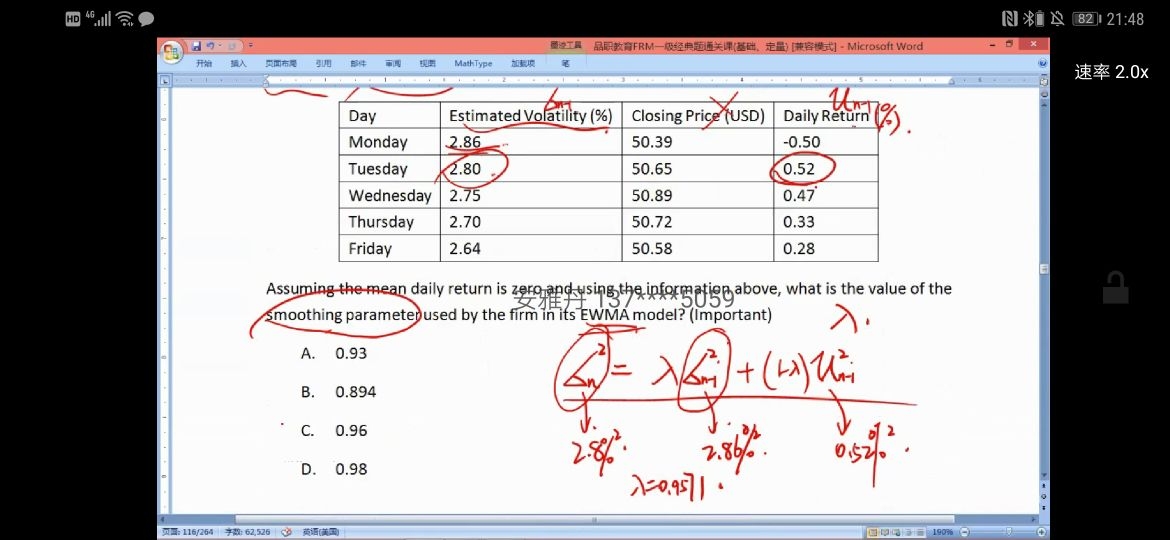 HD 4G 82 21:48
速率 2.0x
墨迹工具 品职教育FRM一级经典题通关课(基础、定量) [兼容模式] - Microsoft Word
开始 插入 页面布局 引用 邮件 审阅 视图 MathType 加载项 笔
σn-1 un-1 (%).
Day Estimated Volatility (%) Closing Price (USD) Daily Return
Monday 2.86 50.39 -0.50
Tuesday 2.80 50.65 0.52
Wednesday 2.75 50.89 0.47
Thursday 2.70 50.72 0.33
Friday 2.64 50.58 0.28
Assuming the mean daily return is zero and using the information above, what is the value of the
安雅丹 137****5059
smoothing parameter used by the firm in its EWMA model? (Important)
λ.
A. 0.93
σn² = λ σn-1² + (1-λ) un-1²
B. 0.894
C. 0.96
2.8%². 2.86%². 0.52%².
D. 0.98
λ=0.9571.
页面: 116/264 字数: 62,526 英语(美国) 190%